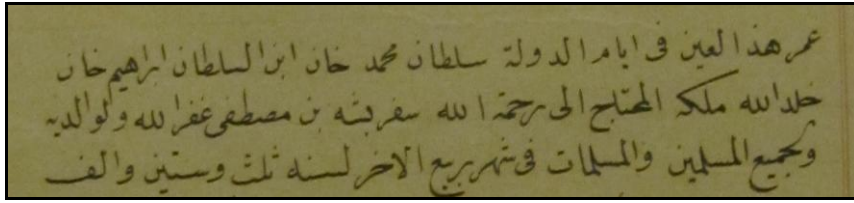 عمر هذا العين فى ايام الدولة سلطان محمد خان ابن السلطان ابراهيم خان
خلد الله ملكه المحتاج الى رحمة الله سفر بشه بن مصطفى غفر الله ولوالديه
ولجميع المسلمين والمسلمات فى شهر ربيع الاخر لسنه ثلث وستين والف